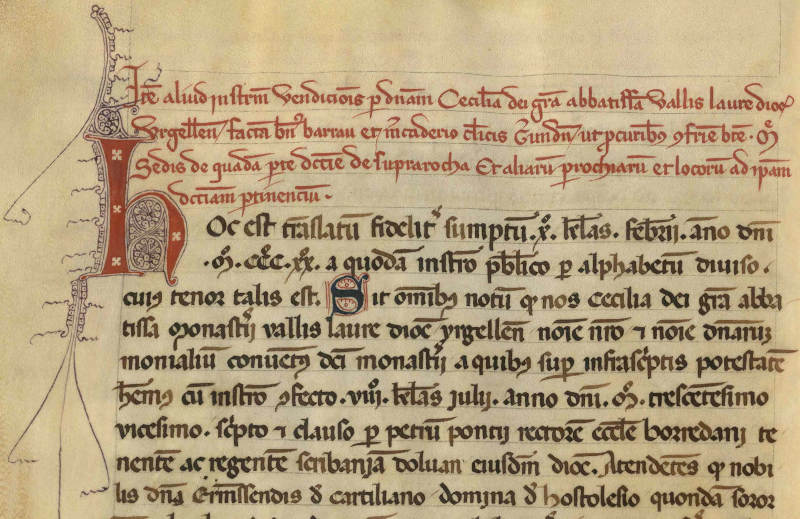 Itē aliud instrm̄ vendicioīs p dnām Cecilia dei grā abbatissā vallis laure dioc̄
Urgelleñ facta bñ barrau et mederio clicis Gerundñ ut pcuribus ꝯfrie bte M̄
Sedis de quadā pte dcc̄ie de suprarocha Et aliarū prochiarū et locorū ad ipam
dcciam ptinenciū.
Hoc est trāslatū fidelit sumptū .x. kl̄as. febrii. año dnī
.M̄. CCC. xx. a quodā instro pblico p alphabetū diviso.
cuius tenor talis est. Sit omībus notū qꝫ nos Cecilia dei grā abba
tissa monastīi vallis laure dioc̄ vrgelleñ noīe nr̄o ⁊ noīe dnaruꝫ
monialiū convētus dc̄i monastīi a quibus sup infrasc̄ptis potestatē
hēmus cū instro ꝯfecto .viii. kl̄as iulii. anno dnī. M̄. trescētesimo
vicesimo. sc̄pto ⁊ clauso p petrū poncii rectorē ecclē borredani te
nentē ac regentē scribaniā doluan eiusdm̄ dioc̄. Atendētes qꝫ nobi
lis dnā Ermssendis d̄ cartiliano domina d̄ hostolesio quondā soror